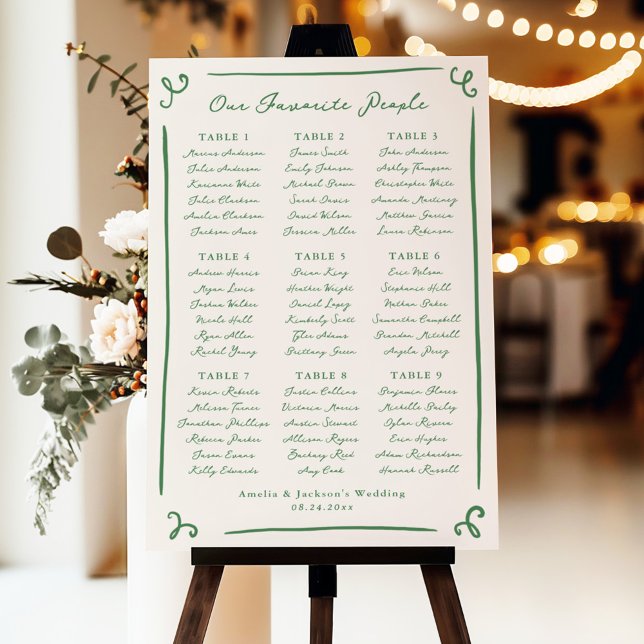 Our Favorite People
TABLE 1
Marcus Anderson
Julie Anderson
Karianne White
Julie Clarkson
Amelia Clarkson
Jackson Ames
TABLE 2
James Smith
Emily Johnson
Michael Brown
Sarah Davis
David Wilson
Jessica Miller
TABLE 3
John Anderson
Ashley Thompson
Christopher White
Amanda Martinez
Matthew Garcia
Laura Robinson
TABLE 4
Andrew Harris
Megan Lewis
Joshua Walker
Nicole Hall
Ryan Allen
Rachel Young
TABLE 5
Brian King
Heather Wright
Daniel Lopez
Kimberly Scott
Tyler Adams
Brittany Green
TABLE 6
Eric Nelson
Stephanie Hill
Nathan Baker
Samantha Campbell
Brandon Mitchell
Angela Perez
TABLE 7
Kevin Roberts
Melissa Turner
Jonathan Phillips
Rebecca Parker
Jason Evans
Kelly Edwards
TABLE 8
Justin Collins
Victoria Morris
Austin Stewart
Allison Rogers
Zachary Reed
Amy Cook
TABLE 9
Benjamin Flores
Michelle Bailey
Dylan Rivera
Erin Hughes
Adam Richardson
Hannah Russell
Amelia & Jackson's Wedding
08.24.20xx